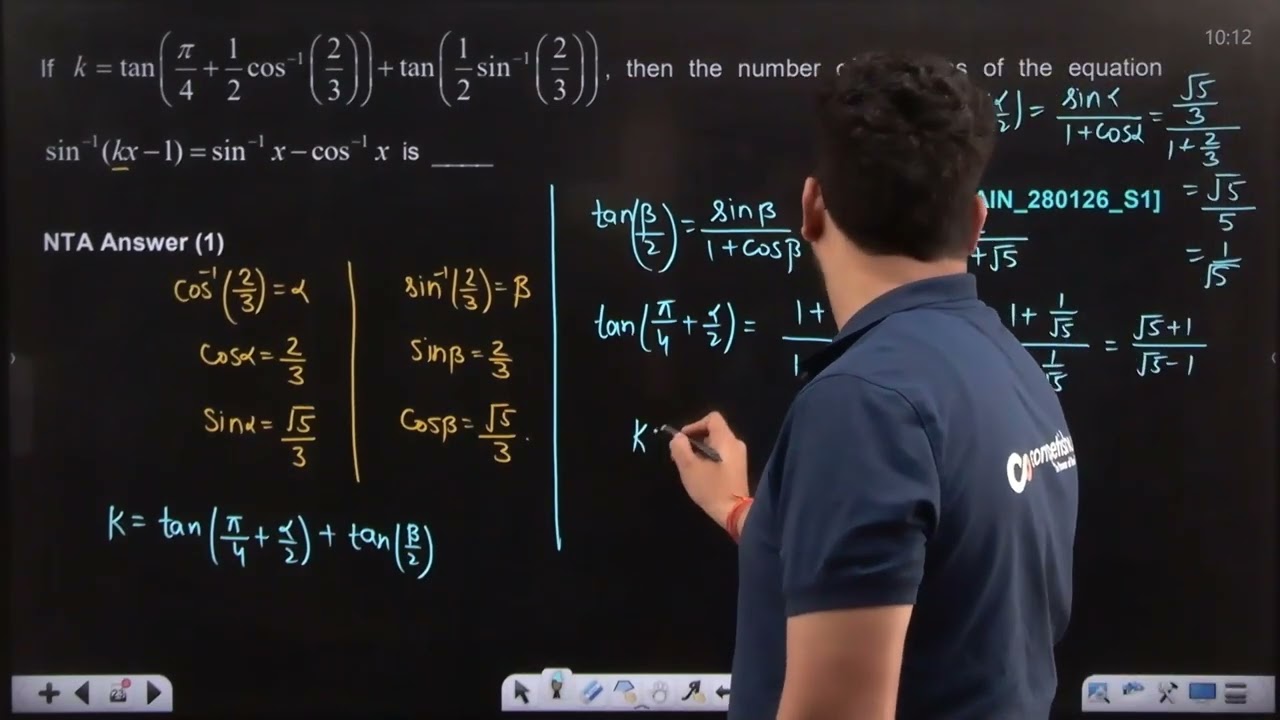 10:12
If k = tan(π/4 + 1/2 cos⁻¹(2/3)) + tan(1/2 sin⁻¹(2/3)), then the number of the equation
sin⁻¹(kx − 1) = sin⁻¹ x − cos⁻¹ x is ____
= sinα/(1+cosα) = (√5/3)/(1+2/3)
= √5/5
= 1/√5
AIN_280126_S1]
NTA Answer (1)
cos⁻¹(2/3) = α
cosα = 2/3
sinα = √5/3
sin⁻¹(2/3) = β
sinβ = 2/3
cosβ = √5/3.
K = tan(π/4 + α/2) + tan(β/2)
tan(β/2) = sinβ/(1+cosβ)
+√5
tan(π/4 + α/2) = 1+ 1 (1 + 1/√5) 1/√5 = (√5+1)/(√5−1)
K